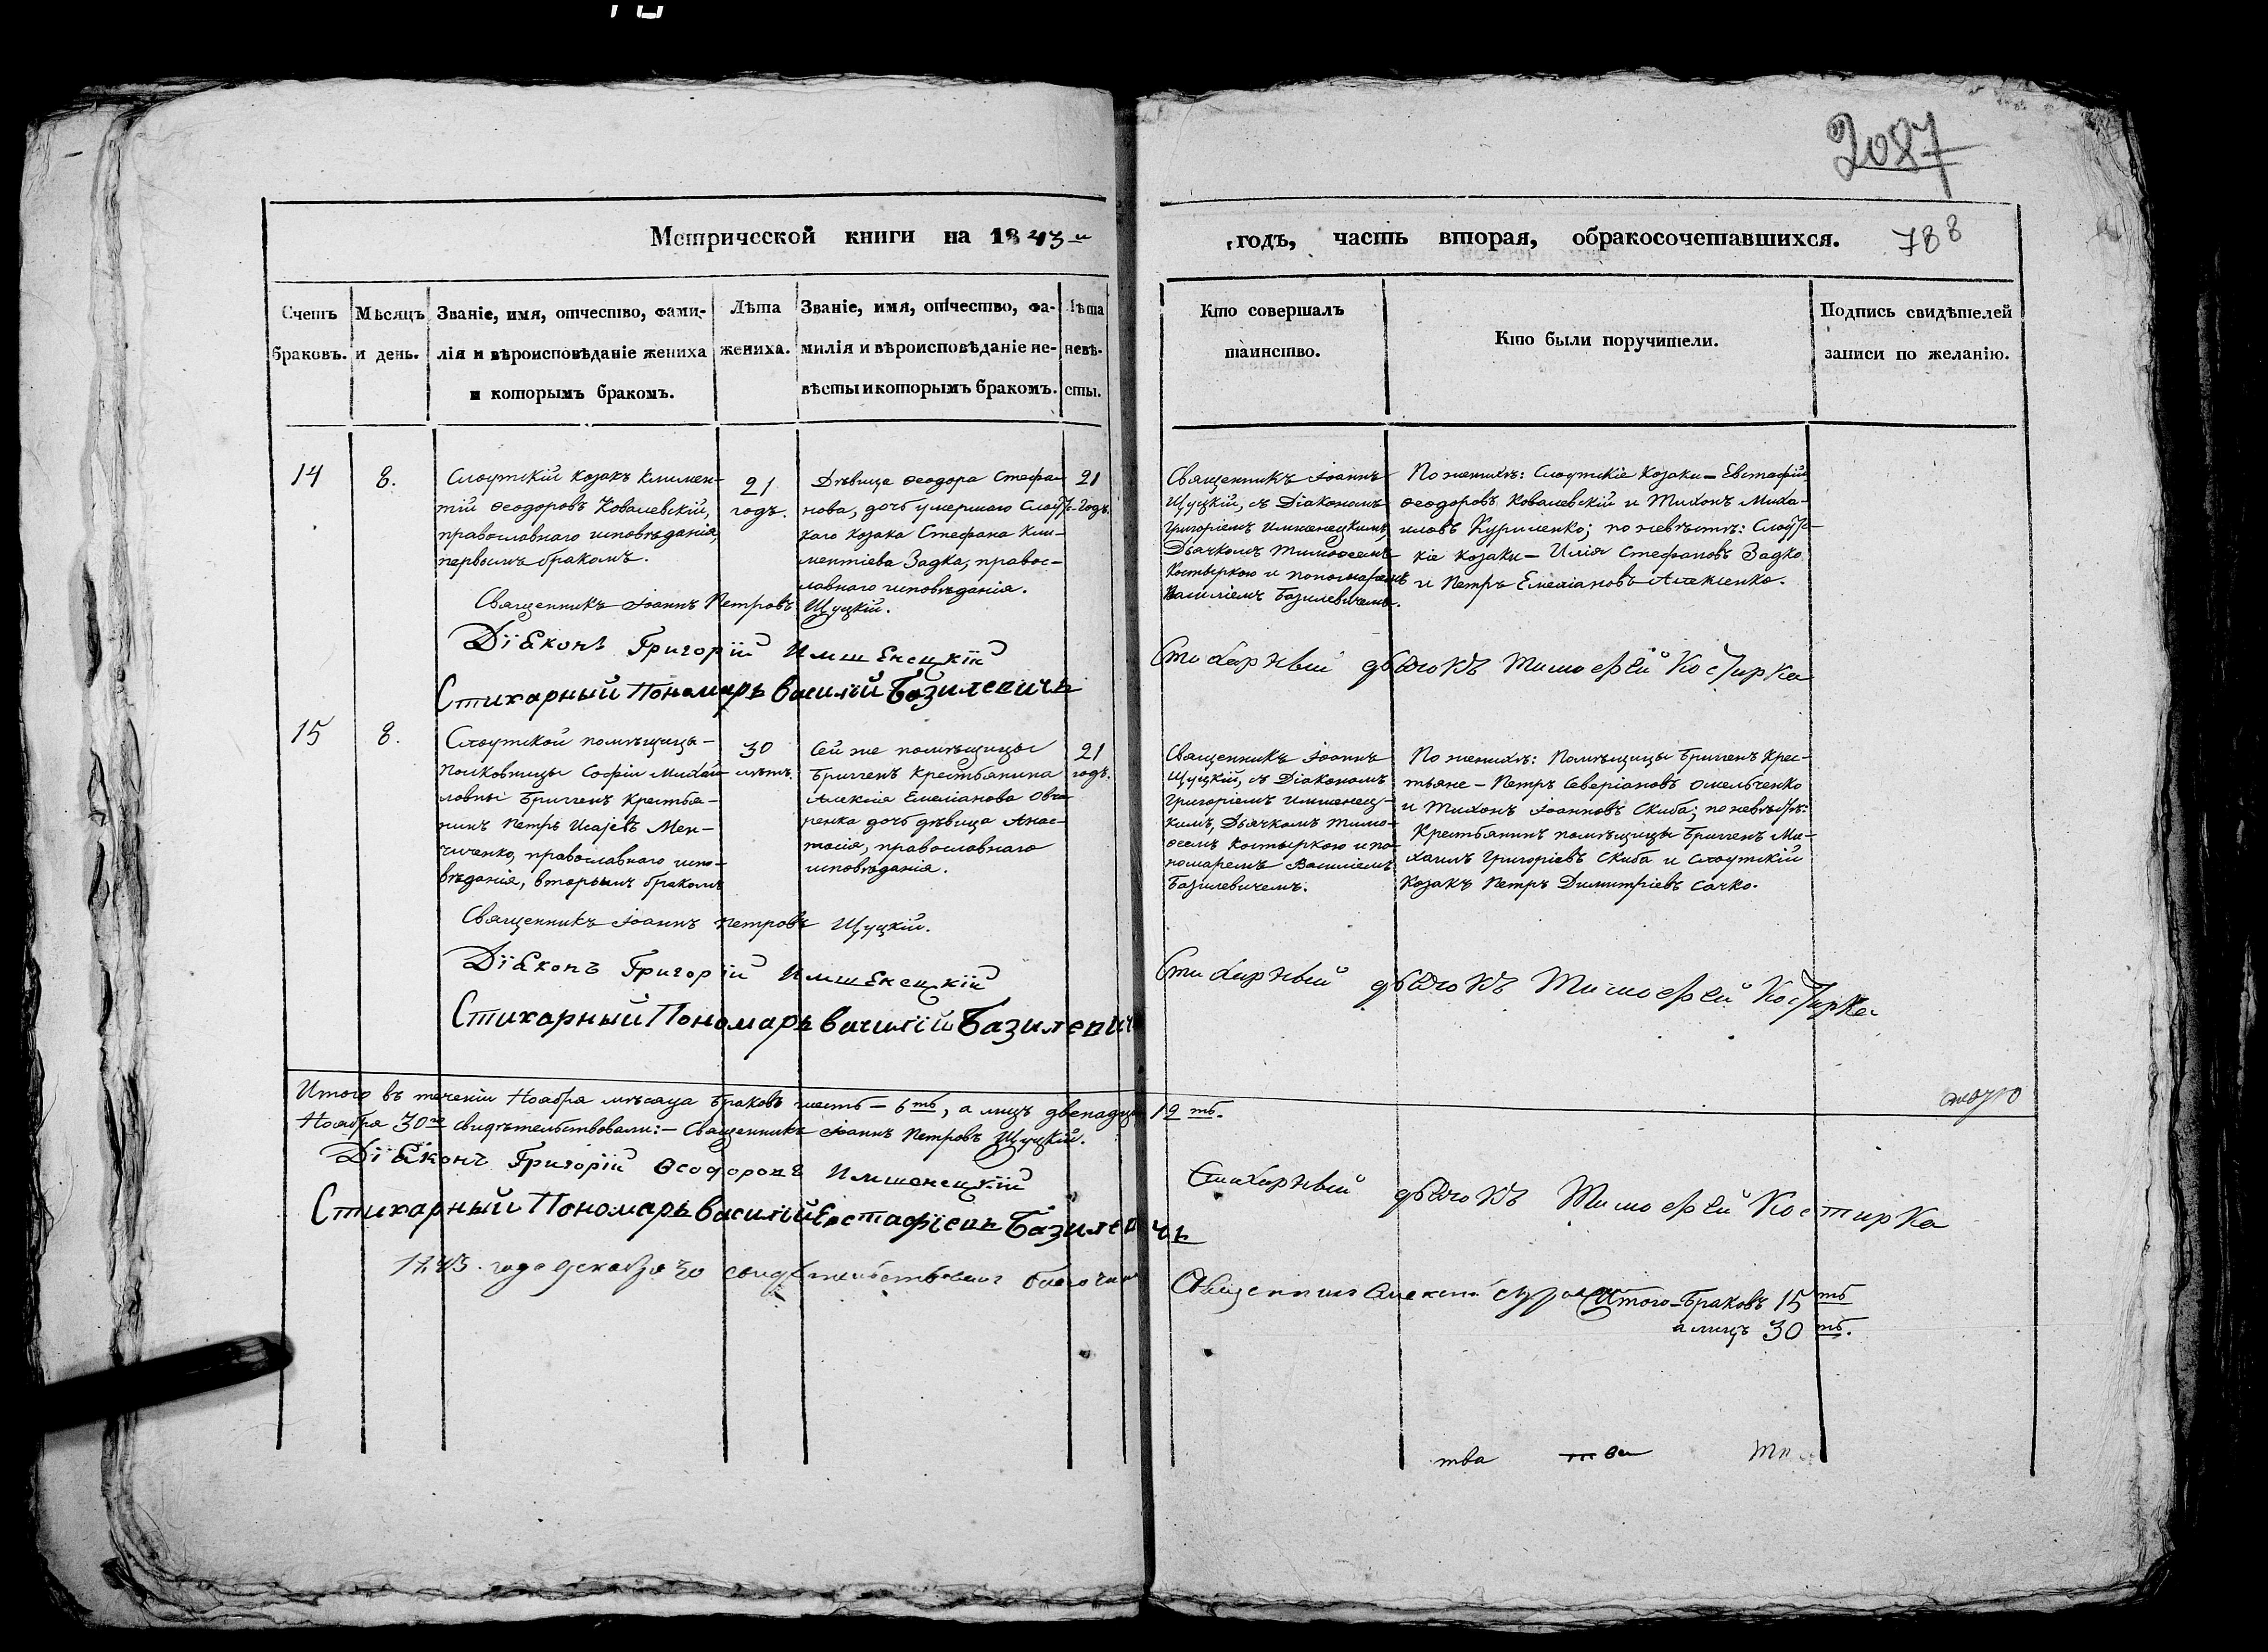 2087
Метрической книги на 1843й
годъ, часть вторая, обракосочетавшихся. 788
Счетъ браковъ.
Мѣсяцъ и день.
Званіе, имя, отчество, фами-
лія и вѣроисповѣданіе жениха
и которымъ бракомъ.
Лѣта
жениха.
Званіе, имя, отчество, фа-
милія и вѣроисповѣданіе не-
вѣсты и которымъ бракомъ.
Лѣта
невѣ-
сты.
Кто совершалъ
таинство.
Кто были поручители.
Подпись свидѣтелей
записи по желанію.
14
8.
Слоутскій козакъ Климен-
тій Ѳеодоровъ Ковалевскій,
православнаго исповѣданія,
первымъ бракомъ.
21
годъ.
Дѣвица Ѳеодора Стефа-
нова, дочь умершаго Слоутс-
каго козака Стефана Кли-
ментіева Задка, правос-
лавнаго исповѣданія.
21
годъ.
Священникъ Іоаннъ
Щуцкій, съ Діакономъ
Григоріемъ Имшенецкимъ,
Дьячкомъ Тимоѳеемъ
Костыркою и пономаремъ
Василіемъ Базилевичемъ.
По женихѣ: Слоутскіе козаки – Евстафій
Ѳеодоровъ Ковалевскій и Тихонъ Миха-
иловъ Куриленко; по невѣстѣ: Слоутс-
кіе козаки – Илія Стефановъ Задко
и Петръ Емеліановъ Алексенко.
Священникъ Іоаннъ Петровъ Щуцкій.
Діаконъ Григорій Имшенецкій
Стихарный дьячокъ Тимофей Костирка
Стихарный Пономарь Василій Базилевичь
15
8.
Слоутской помѣщицы –
Полковницы Софіи Михай-
ловны Бриггенъ крестья-
нинъ Петръ Исаіевъ Мен-
чиченко, православнаго испо-
вѣданія, вторымъ бракомъ
30
лѣтъ.
Сей же помѣщицы
Бриггенъ крестьянина
Алексія Емеліанова Овча-
ренка дочь дѣвица Анас-
тасія, православнаго
исповѣданія.
21
годъ.
Священникъ Іоаннъ
Щуцкій, съ Діакономъ
Григоріемъ Имшенец-
кимъ, Дьячкомъ Тимо-
ѳеемъ Костыркою и по-
номаремъ Василіемъ
Базилевичемъ.
По женихѣ: Помѣщицы Бриггенъ крес-
тьяне – Петръ Северіановъ Омельченко
и Тихонъ Іоанновъ Скиба; по невѣстѣ:
Крестьянинъ помѣщицы Бриггенъ Ми-
хаилъ Григоріевъ Скиба и Слоутскій
козакъ Петръ Димитріевъ Сачко.
Священникъ Іоаннъ Петровъ Щуцкій.
Діаконъ Григорій Имшенецкій
Стихарный дьячокъ Тимофей Костирка
Стихарный Пономарь Василій Базилевичь
Итого въ теченіи Ноября мѣсяца браковъ шесть – 6ть, а лицъ двенадцать 12ть.
Ноября 30го свидѣтельствовали: – Священникъ Іоаннъ Петровъ Щуцкій.
Діаконъ Григорій Ѳеодоровъ Имшенецкій
Стихарный дьячокъ Тимофей Костирка
Стихарный Пономарь Василій Евстафіевъ Базилевичь
1843 года декабря 30 свидѣтельствовалъ
Священникъ Алексѣй
Итого – Браковъ 15ть
а лицъ 30ть.
тва тва